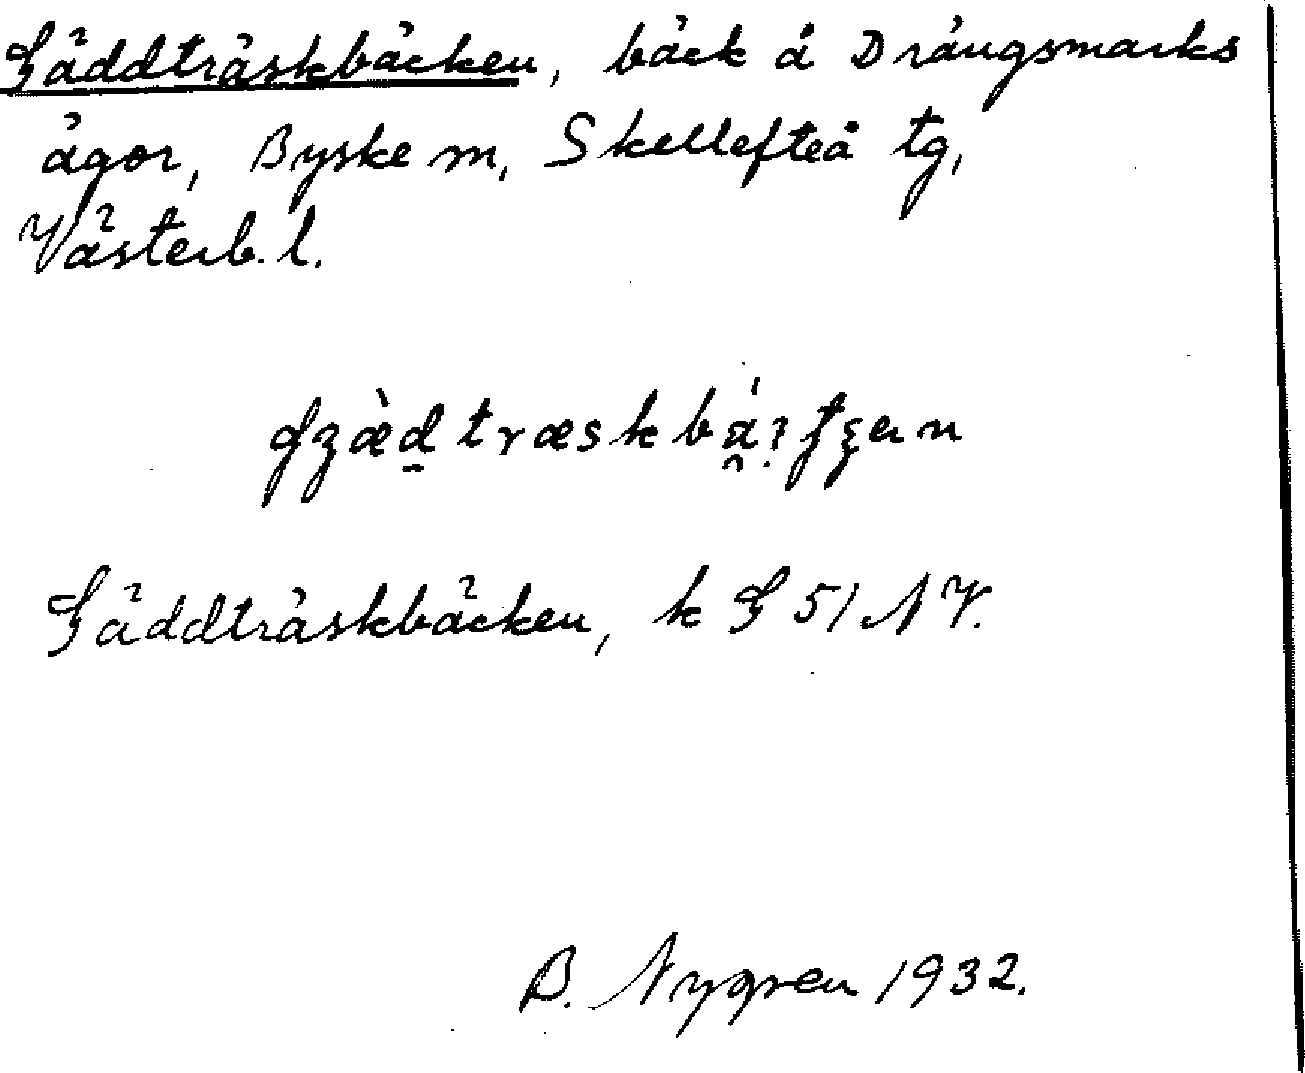 Gäddträskbäcken, bäck å Drängsmarks
ägor, Byske m, Skellefteå tg,
Västerb. l.
Gäddträskbäcken, k G 51 NV.
B. Nygren 1932.